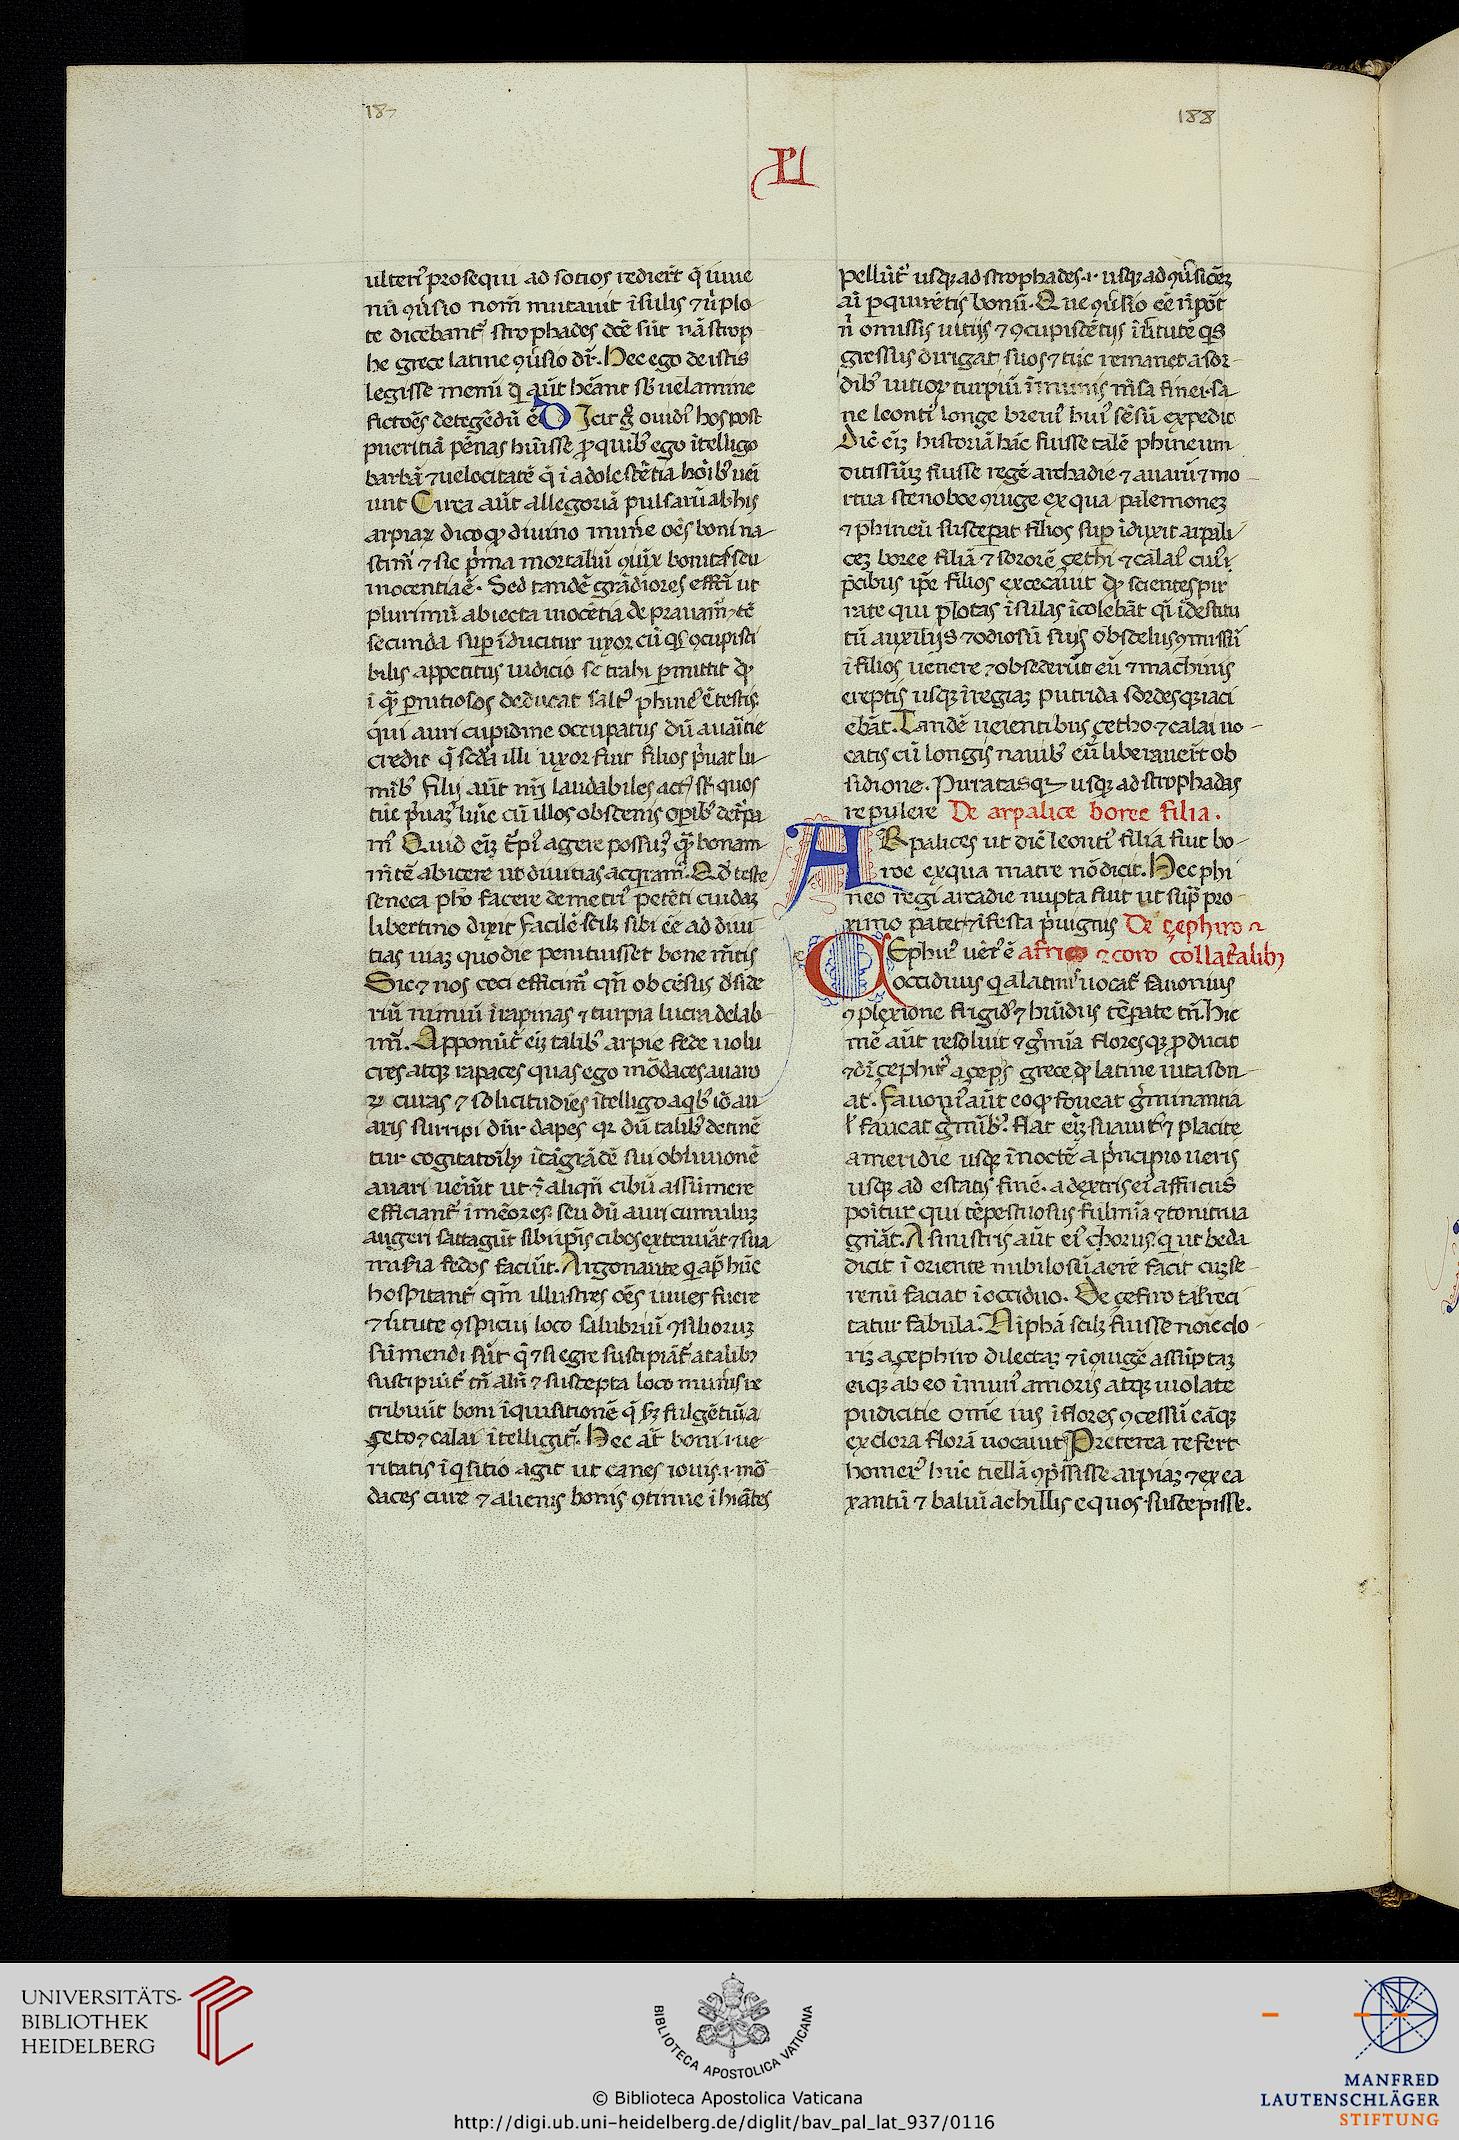 187
188
ulteri᾿ prosequi ad sotios rediert̃ q̃ iuue
nũ ꝯũsio nom̃ mutauit ĩsulis ⁊ ũ plo
te dicebant᷑ strophades dc̃e sũt nã strop
he grece latine ꝯũsio dr̃. Hec ego de istis
legisse memĩ q̃ aũt hẽant sb᷑ uelamine
fictiõẽs detegẽdũ ẽ DIcit g̃ ouidi᾿ hos post
pueritiã pẽnas hũisse ꝓ quib᷒ ego ĩtelligo
barbã ⁊ uelocitatẽ q̃ ĩ adolescẽtia hoĩb᷒ uei
unt Circa aũt allegoriã pulsarũ ab his
arpiaꝝ dico qꝫ diuino mũne oẽs boni na
scim̃ ⁊ sic p̃ma mortaliũ ꝯiũx bonitas seu
inocentia ẽ. Sed tandẽ grãdiores effc̃i ut
plurimũ abiecta inocẽtia de prauam̃ ⁊ tẽ
secunda suꝑ ĩducitur uxor cũ qs ꝯcupisci
bilis appetitus iudicio se trahi ꝑmittit qꝫ
ĩ q̃ ꝑnitiosos deducat salt᾿ phine᾿ ẽ testis
qui auri cupidine occupatus dũ auaritie
credit q̃ scd̃a illi uxor fuit filios p̃uat lu
mĩb᷒ filij aũt nr̃i laudabiles act᾿ st̃ quos
tũc p̃uaꝫ luĩe cũ illos obscenis oꝑib᷒ det᷑pa
m᾿ Quid eĩꝫ t̃pi᾿ agere possuꝫ q̃ bonam
m̃tẽ abicere ut diuitias acq̃ram᾿. Qd᷑ teste
seneca pho facere demetri᾿ petẽti cuidaꝫ
libertino dixit facilẽ scilꝫ sibi ẽẽ ad diui
tias uiaꝫ quo die penituisset bone mẽtis
Sic ⁊ nos ceci efficim̃ qñ ob cẽsus d᷑side
riũ nimiũ ĩ rapinas ⁊ turpia lucra delab
im̃. Apponũt᷑ eĩꝫ talib᷒ arpie fede uolu
cres atqꝫ rapaces quas ego mõdaces auaro
ꝝ curas ⁊ solicitudĩes ĩtelligo a qb᷒ iõ au
aris surripi dñr dapes qꝛ dũ talib᷒ detinẽ
tur cogitatoĩbꝫ ĩ tã grãdẽ sui obliuionẽ
auari ueĩũt ut ⁊ aliqñ cibũ assumere
efficiant᷑ ĩmẽores. seu dũ auri cumuluꝫ
augeri satagũt sibi ip̃is cibos extenuãt ⁊ sua
misĩa fedos faciũt. Argonaute q ap᷑ hũc
hospitant᷑ qm̃ illustres oẽs iuues fuere
⁊ ũtute ꝯspicui loco salubriũ ꝯsilioruꝫ
sumendi sũt q̃ ⁊ si egre suscipiãt᷑ a talibꝫ
suscipiũt᷑ tñ alñ ⁊ suscepta loco mũnis re
tribuũt boni ĩquisitionẽ q̃ ꝑ fulgẽtũ a
çeto ⁊ calai ĩtelligit᷑. Hec at̃ boni .i. ue
ritatis ĩqsitio agit ut canes iouis .i. mõ
daces cure ⁊ alienis bonis ꝯtinue ĩhiãtes
pellũt᷑ usqꝫ ad strophades .i. usqꝫ ad ꝯũsionẽꝫ
aĩ pquirẽtis bonũ. Que ꝯũsio ẽẽ ñ pot̃
ñ omissis uitijs ⁊ ꝯcupiscẽtijs ĩ ũtutẽ qs
gressus dirigat suos ⁊ tũc remanet a sor
dib᷒ uitioꝝ turpiũ ĩmunis mẽsa finei. sa
ne leonti᾿ longe breui᾿ hui᾿ sẽsũ expedit
Dic̃ eĩꝫ historiã hãc fuisse talẽ phineum
ditissiũꝫ fuisse regẽ archadie ⁊ auarũ ⁊ mo
rtua stenoboe ꝯiuge ex qua palemoneꝫ
⁊ phineũ susceꝑat filios suꝑ ĩduxit arpali
ceꝫ boree filiã ⁊ sororẽ çethi ⁊ calai᾿ cui᾿
p̃cibus ip̃e filios excecauit qꝫ scientes pir
rate qui plotas ĩsulas ĩcolebãt qĩ ĩdestitu
tũ auxilijs ⁊ odiosũ suis ob scelus ꝯmissũ
ĩ filios uenere ⁊ obsederũt eũ ⁊ machinis
ereptis usqꝫ ĩ regiaꝫ putrida sordesqꝫ iaci
ebãt. Tandẽ ueientibus çetho ⁊ calai uo
catis cũ longis nauib᷒ eũ liberauert̃ ob
sidione. Pirratasqꝫ usqꝫ ad strophadas
repulere De arpalice boree filia.
ARpalices ut dic̃ leonti᾿ filia fuit bo
ree ex qua matre nõ dicit. Hec phi
neo regi arcadie nupta fuit ut sup᷑ pro
ximo patet ⁊ ĩfesta p̃uignis De çephiro ⁊
ÇEphir᾿ uẽt᾿ ẽ africo ⁊ coro collatralibꝫ
occiduus q a latinis uocat᷑ fauonius
ꝯplexione frigid᾿ ⁊ hũidus tẽꝑate tñ. hic
mẽ aũt resoluit ⁊ g᷑mĩa floresqꝫ ꝓducit
⁊ dr̃ çephir᾿ a çeps grece qꝫ latine uita son
at. Fauoni᾿ aũt eo qꝫ foueat g᷑minantia
ł faueat g᷑mĩb᷒. flat eĩꝫ suauit᷑ ⁊ placite
a meridie usqꝫ ĩ noctẽ a p̃ncipio ueris
usqꝫ ad estatis finẽ. a dextris ei᾿ affricus
poĩtur qui tẽpestuosus fulmĩa ⁊ tonitrua
gñãt. A sinistris aũt ei᾿ chorus q ut beda
dicit ĩ oriente nubilosũ aerẽ facit cuꝫ se
renũ faciat ĩ occiduo. De çefiro tal᾿ reci
tatur fabula. Niphã scilꝫ fuisse noĩe clo
riꝫ a çephiro dilectaꝫ ⁊ ĩ ꝯiugẽ assũptaꝫ
eiqꝫ ab eo ĩ muni᾿ amoris atqꝫ uiolate
pudicitie om̃e ius ĩ flores ꝯcessũ eãqꝫ
ex clora florã uocauit Preterea refert
homer᾿ hũc tiellã ꝯp̃ssisse arpiaꝫ ⁊ ex ea
xantũ ⁊ baliũ achillis equos suscepisse.
UNIVERSITÄTS-
BIBLIOTHEK
HEIDELBERG
BIBLIOTECA APOSTOLICA VATICANA
© Biblioteca Apostolica Vaticana
http://digi.ub.uni-heidelberg.de/diglit/bav_pal_lat_937/0116
MANFRED
LAUTENSCHLÄGER
STIFTUNG